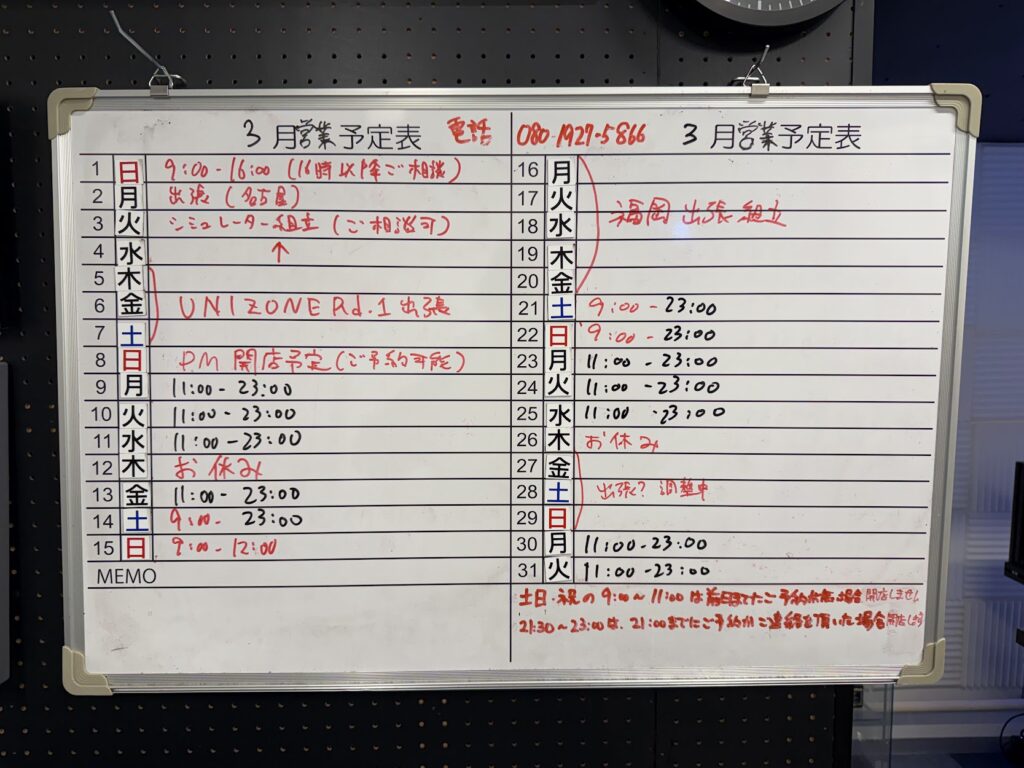 3月営業予定表 電話 080-1927-5866 3月営業予定表
1 日 9:00-16:00 (16時以降ご相談)
2 月 出張 (名古屋)
3 火 シミュレーター組立 (ご相談可)
4 水 ↑
5 木
6 金 UNIZONE Rd.1 出張
7 土
8 日 PM 開店予定 (ご予約可能)
9 月 11:00-23:00
10 火 11:00-23:00
11 水 11:00-23:00
12 木 お休み
13 金 11:00-23:00
14 土 9:00-23:00
15 日 9:00-12:00
MEMO
16 月
17 火
18 水 福岡 出張 組立
19 木
20 金
21 土 9:00-23:00
22 日 9:00-23:00
23 月 11:00-23:00
24 火 11:00-23:00
25 水 11:00-23:00
26 木 お休み
27 金
28 土 出張? 調整中
29 日
30 月 11:00-23:00
31 火 11:00-23:00
土日・祝の9:00~11:00は前日までにご予約 場合開店しません
21:30~23:00は、21:00までにご予約かご連絡を頂いた場合開店します